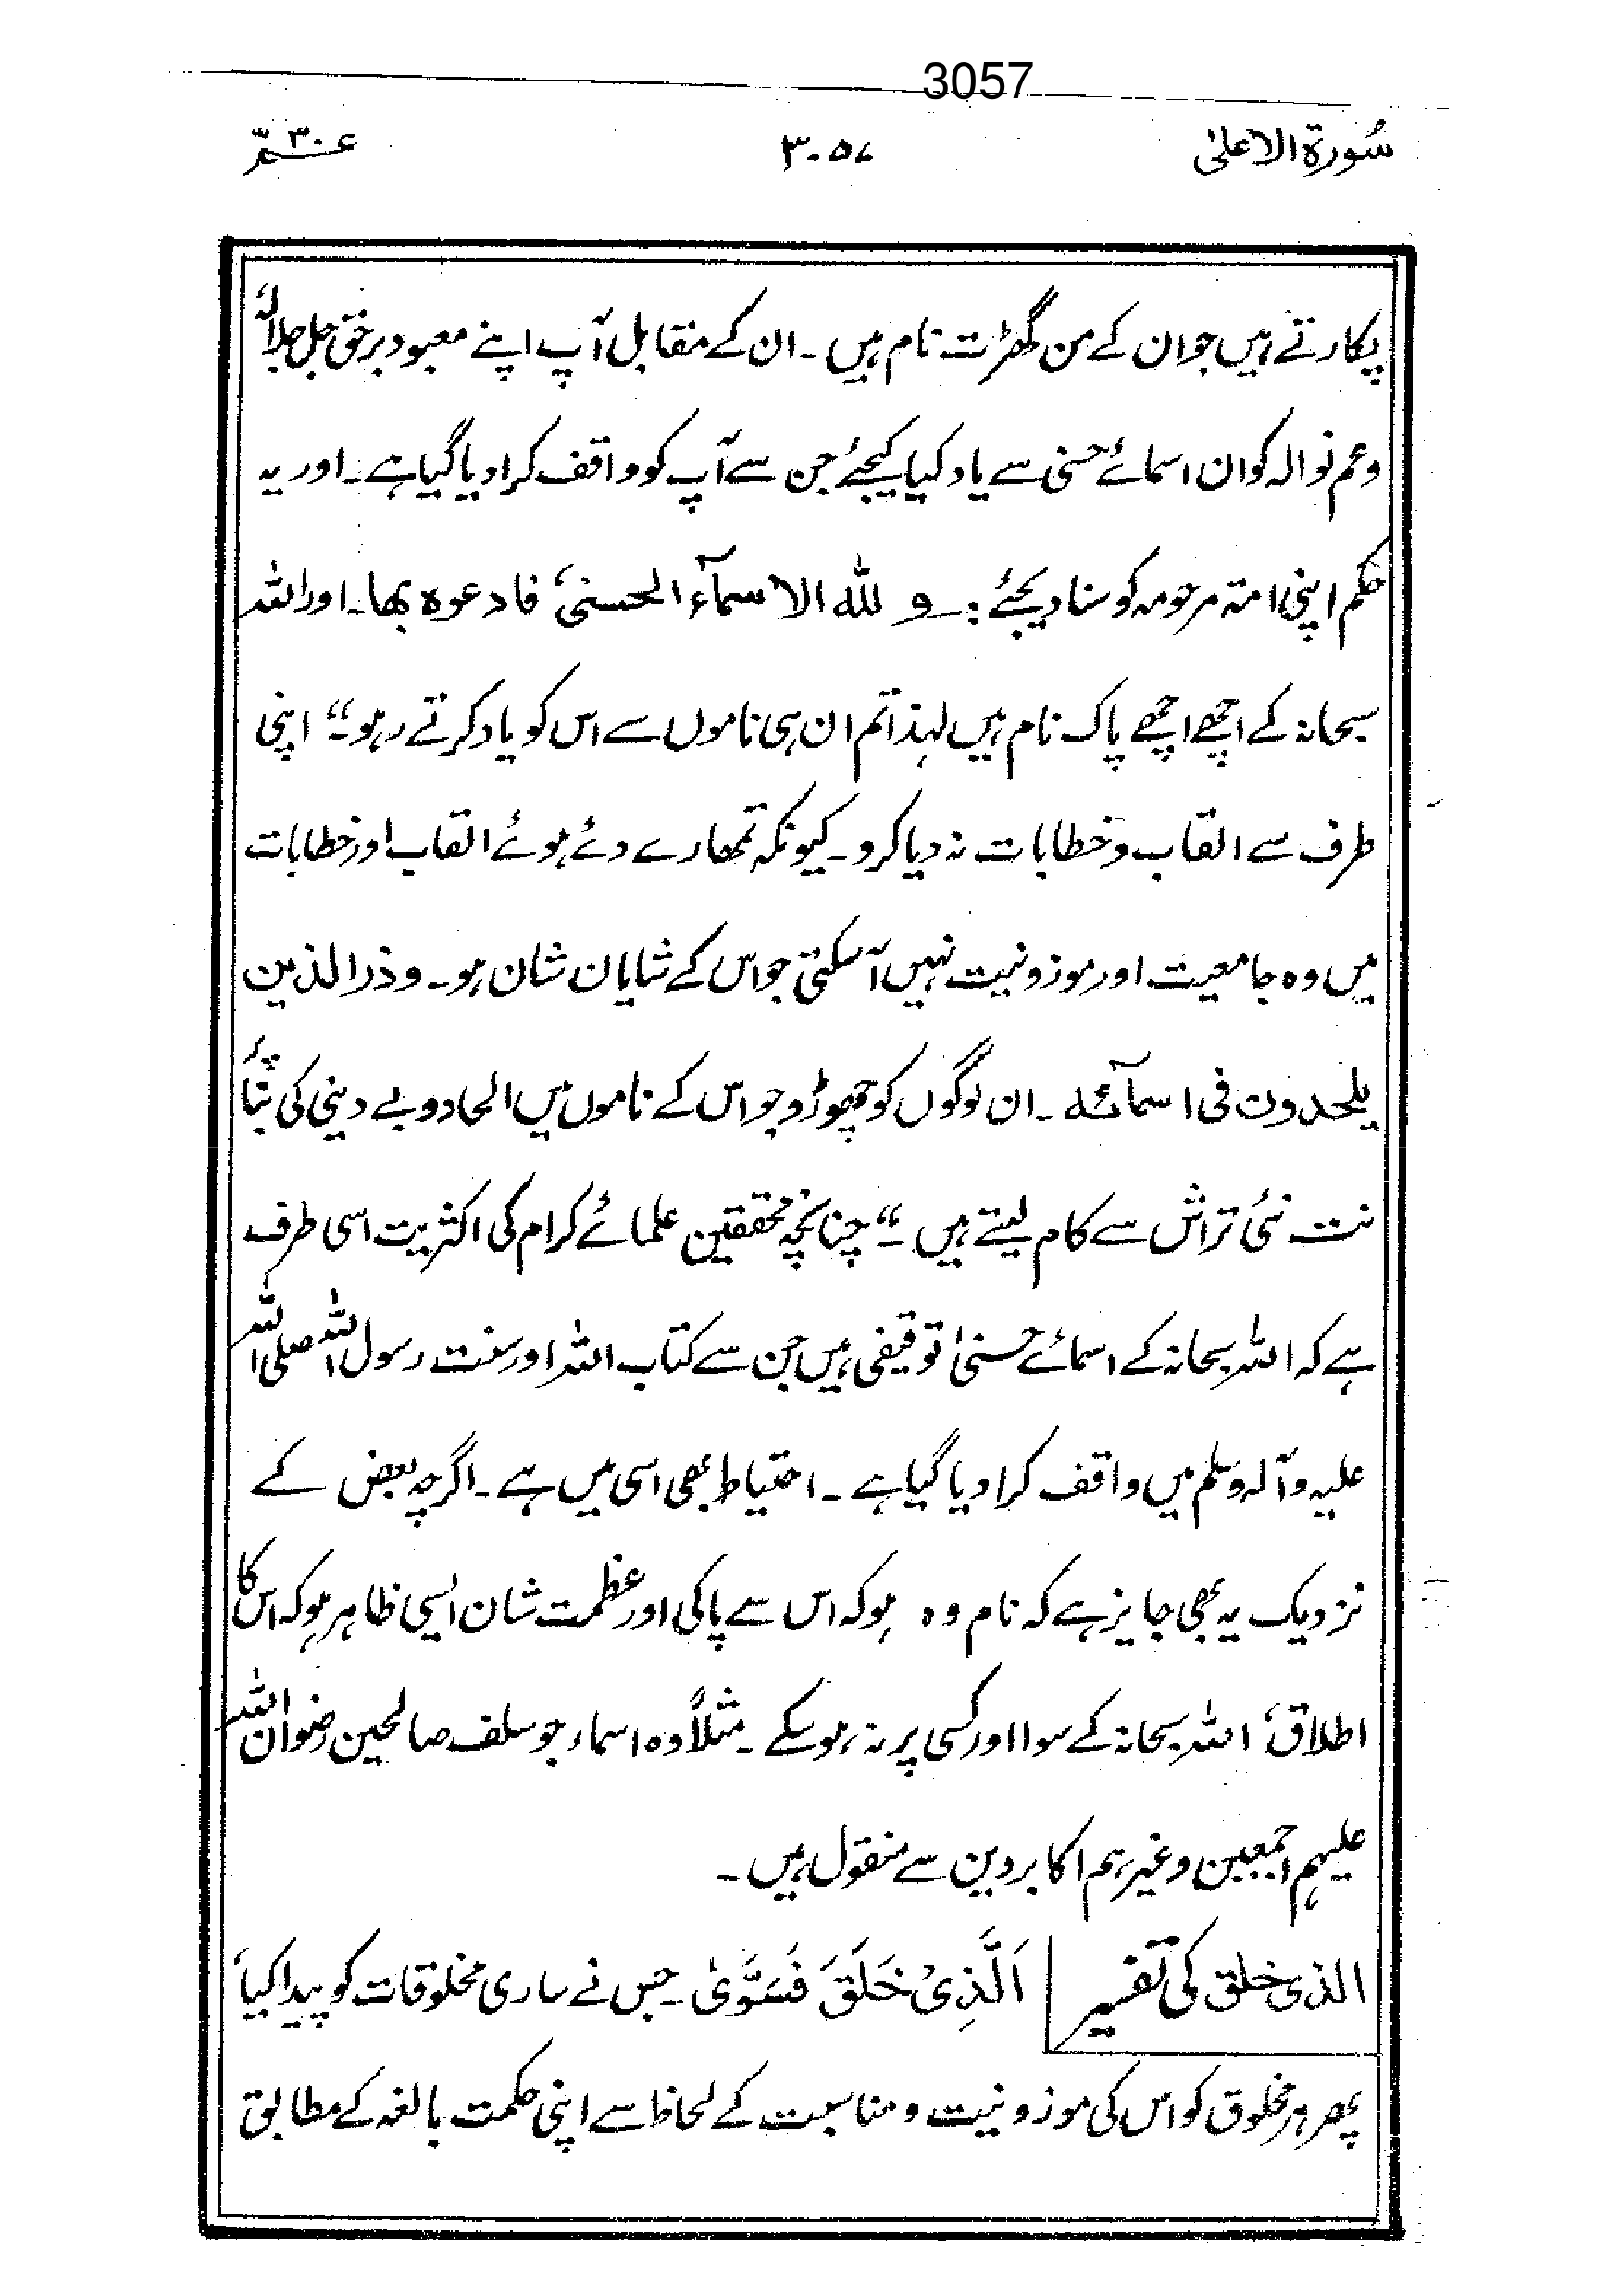 3057
سُورة الاعلیٰ ۳۰۵۷ عمّ ۳۰
پکارتے ہیں جو ان کے من گھڑت نام ہیں ۔ ان کے مقابل آپ اپنے معبود برحق جل جلالہٗ
وعم نوالہ کو ان اسمائے حسنیٰ سے یاد کیا کیجئے جن سے آپ کو واقف کرا دیا گیا ہے ۔ اور یہ
حکم اپنی امۃ مرحومہ کو سنا دیجئے :۔ و للہ الاسمآء الحسنیٰ فادعوہ بھا ۔ اور اللہ
سبحانہ کے اچھے اچھے پاک نام ہیں لہذا تم ان ہی ناموں سے اس کو یاد کرتے رہو ۔“ اپنی
طرف سے القاب و خطابات نہ دیا کرو ۔ کیونکہ تمھارے دئے ہوئے القاب اور خطابات
میں وہ جامعیت اور موزونیت نہیں آسکتی جو اس کے شایان شان ہو ۔ و ذر الذین
یلحدون فی اسمآئہ ۔ ان لوگوں کو چھوڑو جو اس کے ناموں میں الحاد و بے دینی کی بنأ پر
نت نئی تراش سے کام لیتے ہیں ۔“ چنانچہ محققین علمائے کرام کی اکثریت اسی طرف
ہے کہ اللہ سبحانہ کے اسمائے حسنیٰ توقیفی ہیں جن سے کتاب اللہ اور سنت رسول اللہ صلی اللہ
علیہ وآلہ وسلم میں واقف کرا دیا گیا ہے ۔ احتیاط بھی اسی میں ہے ۔ اگرچہ بعض کے
نزدیک یہ بھی جایز ہے کہ نام وہ ہو کہ اس سے پاکی اور عظمت شان ایسی ظاہر ہو کہ اس کا
اطلاق ، اللہ سبحانہ کے سوا اور کسی پر نہ ہو سکے ۔ مثلاً وہ اسماء جو سلف صالحین رضوان اللہ
علیہم اجمعین وغیرہم اکابر دین سے منقول ہیں ۔
الذی خلق کی تفسیر اَلَّذِیْ خَلَقَ فَسَوّٰی ۔ جس نے ساری مخلوقات کو پیدا کیا ،
پھر ہر مخلوق کو اس کی موزونیت و مناسبت کے لحاظ سے اپنی حکمت بالغہ کے مطابق